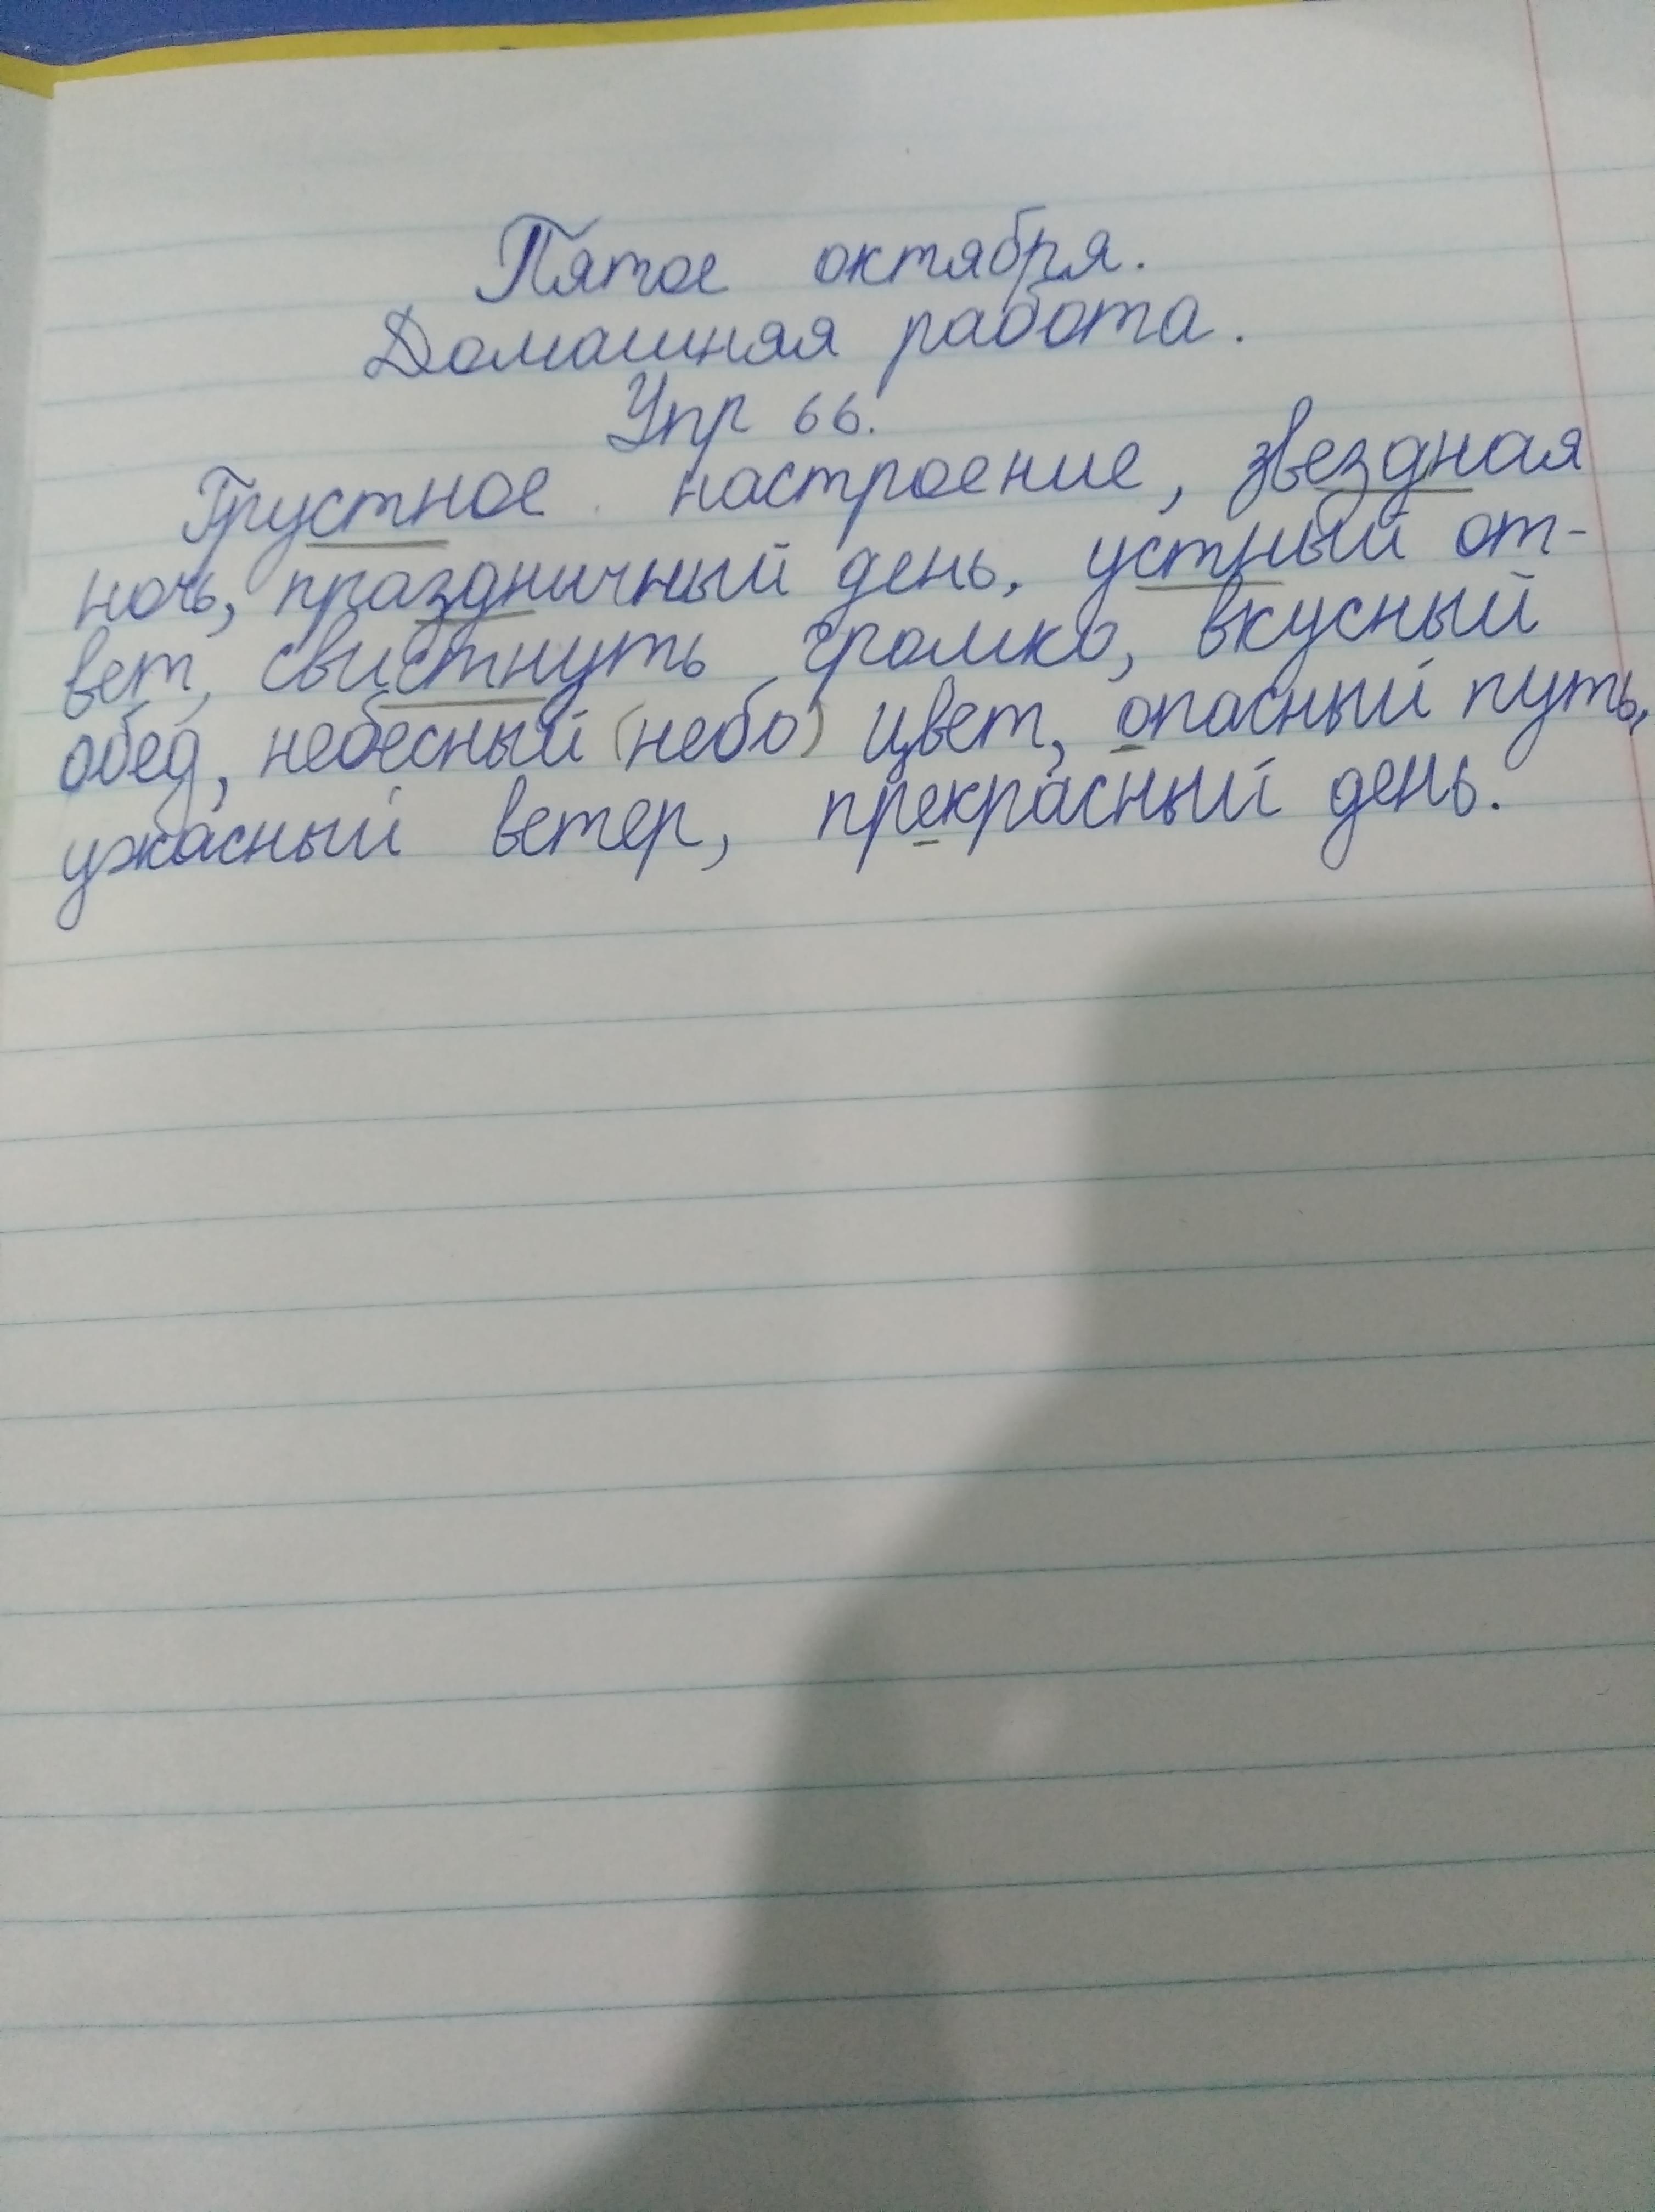 Пятое октября.
Домашняя работа.
Упр 66.
Грустное настроение, звездная
ночь, праздничный день, устный от-
вет, свистнуть громко, вкусный
обед, небесный (небо) цвет, опасный путь,
ужасный ветер, прекрасный день.